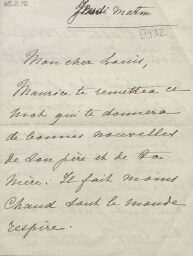 65.2.12
Jeudi matin
[1932
Mon cher Louis,
Maurice te remettra ce
mot qui te donnera
de bonnes nouvelles
de ton père et de ta
mère. Il fait moins
chaud tout le monde
respire.